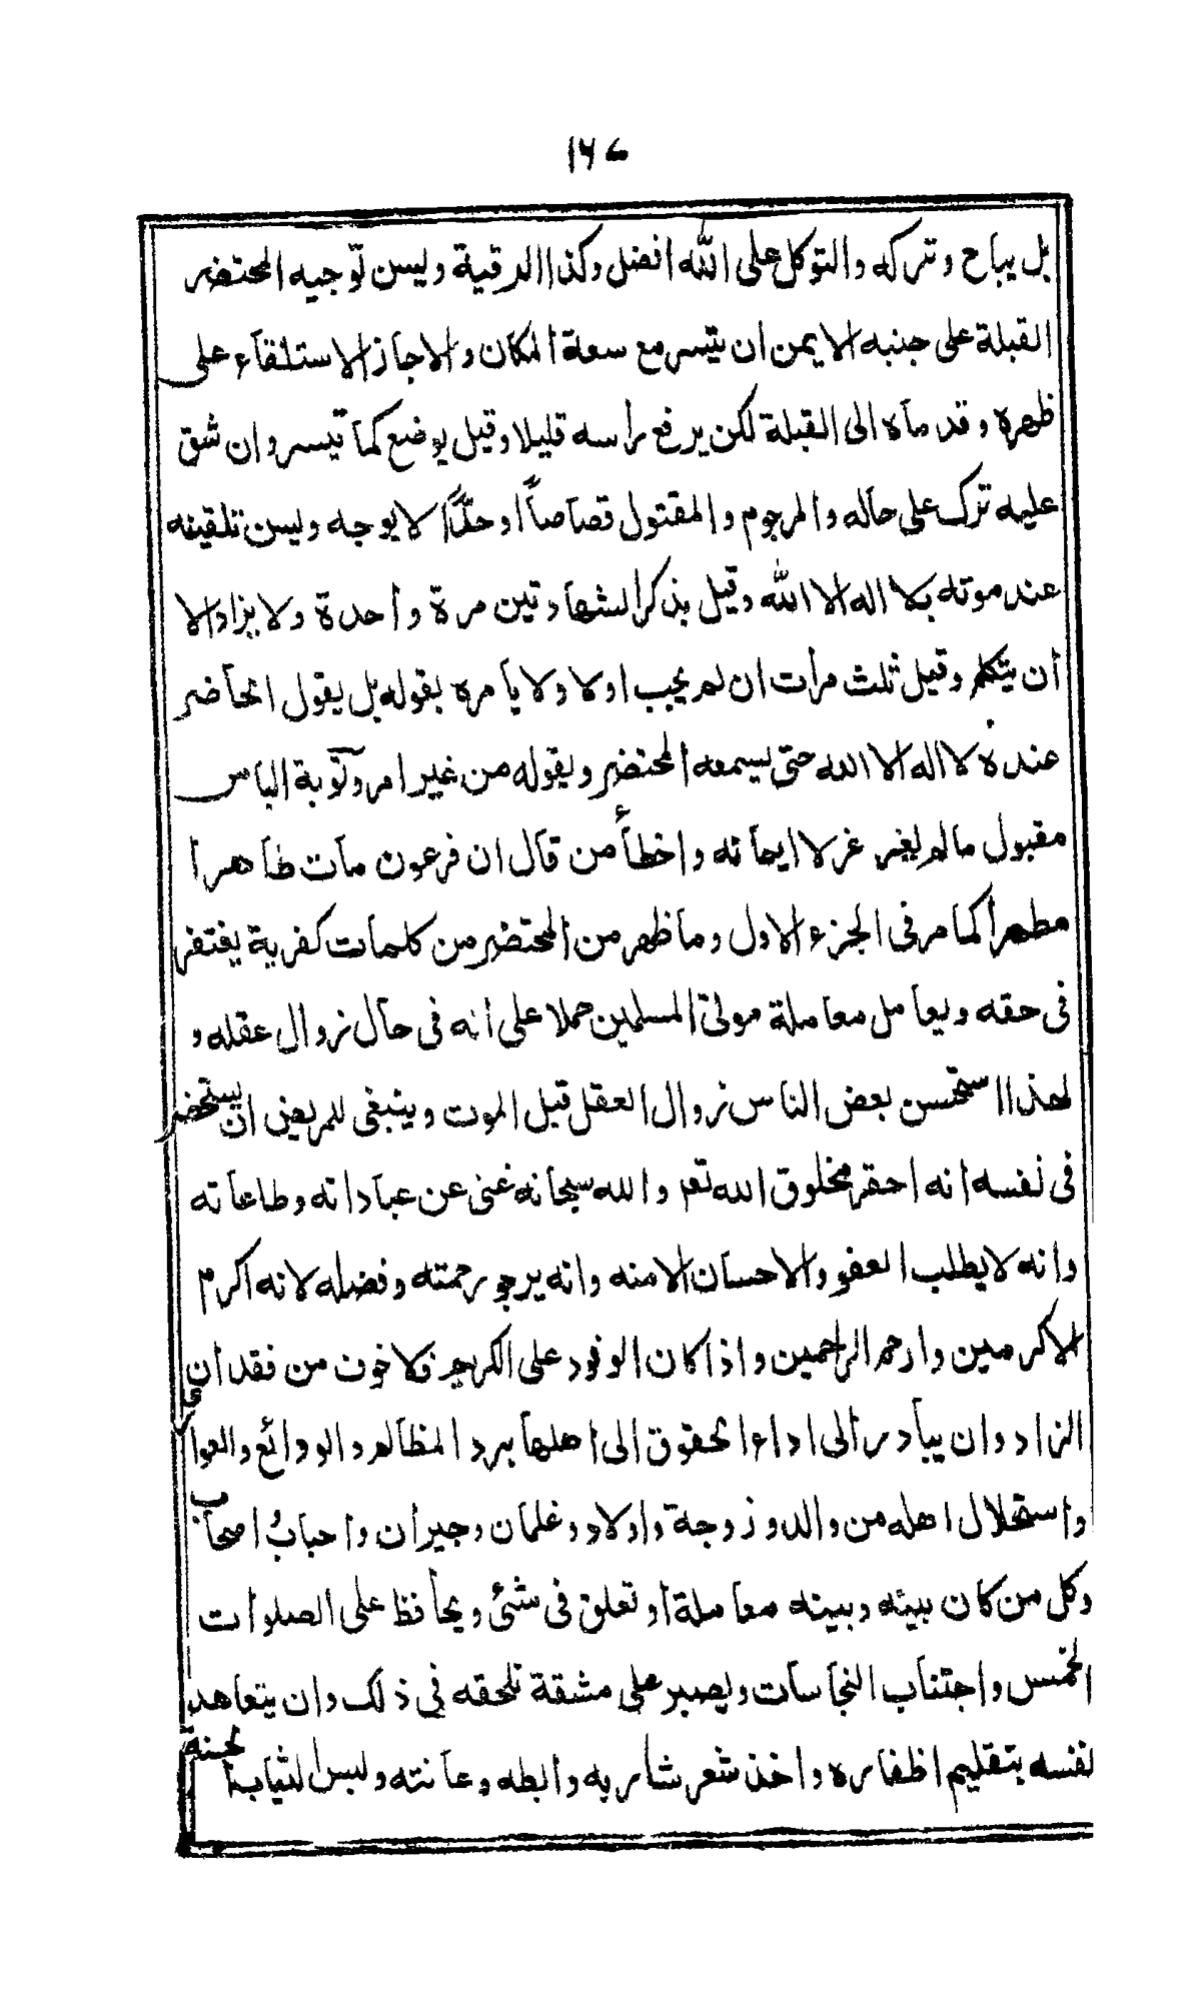 ١٦٤
بل يباح وتركه والتوكل على الله افضل وكذا الرقية وليسن توجيه المحتضر
القبلة على جنبه الايمن ان يتيسر مع سعة المكان والاجاز الاستلقاء على
ظهره وقدماه الى القبلة لكن يرفع رأسه قليلا وقيل يوضع كما تيسر وان شق
عليه ترك على حاله والمرجوم والمقتول قصاصاً او حدًّا لا يوجه وليسن تلقينه
عند موته بلا اله الا الله وقيل بذكر الشهادتين مرة واحدة ولا يزاد الا
أن يتكلم وقيل ثلث مرات ان لم يجب اولا ولا يأمره بقوله بل يقول الحاضر
عنده لا اله الا الله حتى يسمعه المحتضر ويقوله من غير امر وتوبة الباس
مقبول مالم يغرغر لا ايمانه واخطأ من قال ان فرعون مات طاهرا
مطهرا كما مر فى الجزء الاول وما ظهر من المحتضر من كلمات كفرية يغتفر
فى حقه ويعامل معاملة موتى المسلمين حملا على أنه فى حال زوال عقله و
لهذا استحسن بعض الناس زوال العقل قبل الموت وينبغى للمريض ان يستحضر
فى نفسه انه احقر مخلوق الله تعم والله سبحانه غنى عن عباداته وطاعاته
وانه لا يطلب العفو والاحسان الا منه وانه يرجو رحمته وفضله لانه اكرم
الاكرمين وارحم الراحمين واذا كان الوفود على الكريم فلا خوف من فقدان
الزاد وان يبادر الى اداء الحقوق الى اهلها برد المظالم والودائع والعوارى
واستحلال اهله من والد وزوجة واولاد وغلمان وجيران واحباب اصحاب
وكل من كان بينه وبينه معاملة او تعلق فى شئ ويحافظ على الصلوات
الخمس واجتناب النجاسات وليصبر على مشقة تلحقه فى ذلك وان يتعاهد
لنفسه بتقليم اظفاره واخذ شعر شاربه وابطه وعانته ولبس الثياب الحسنة